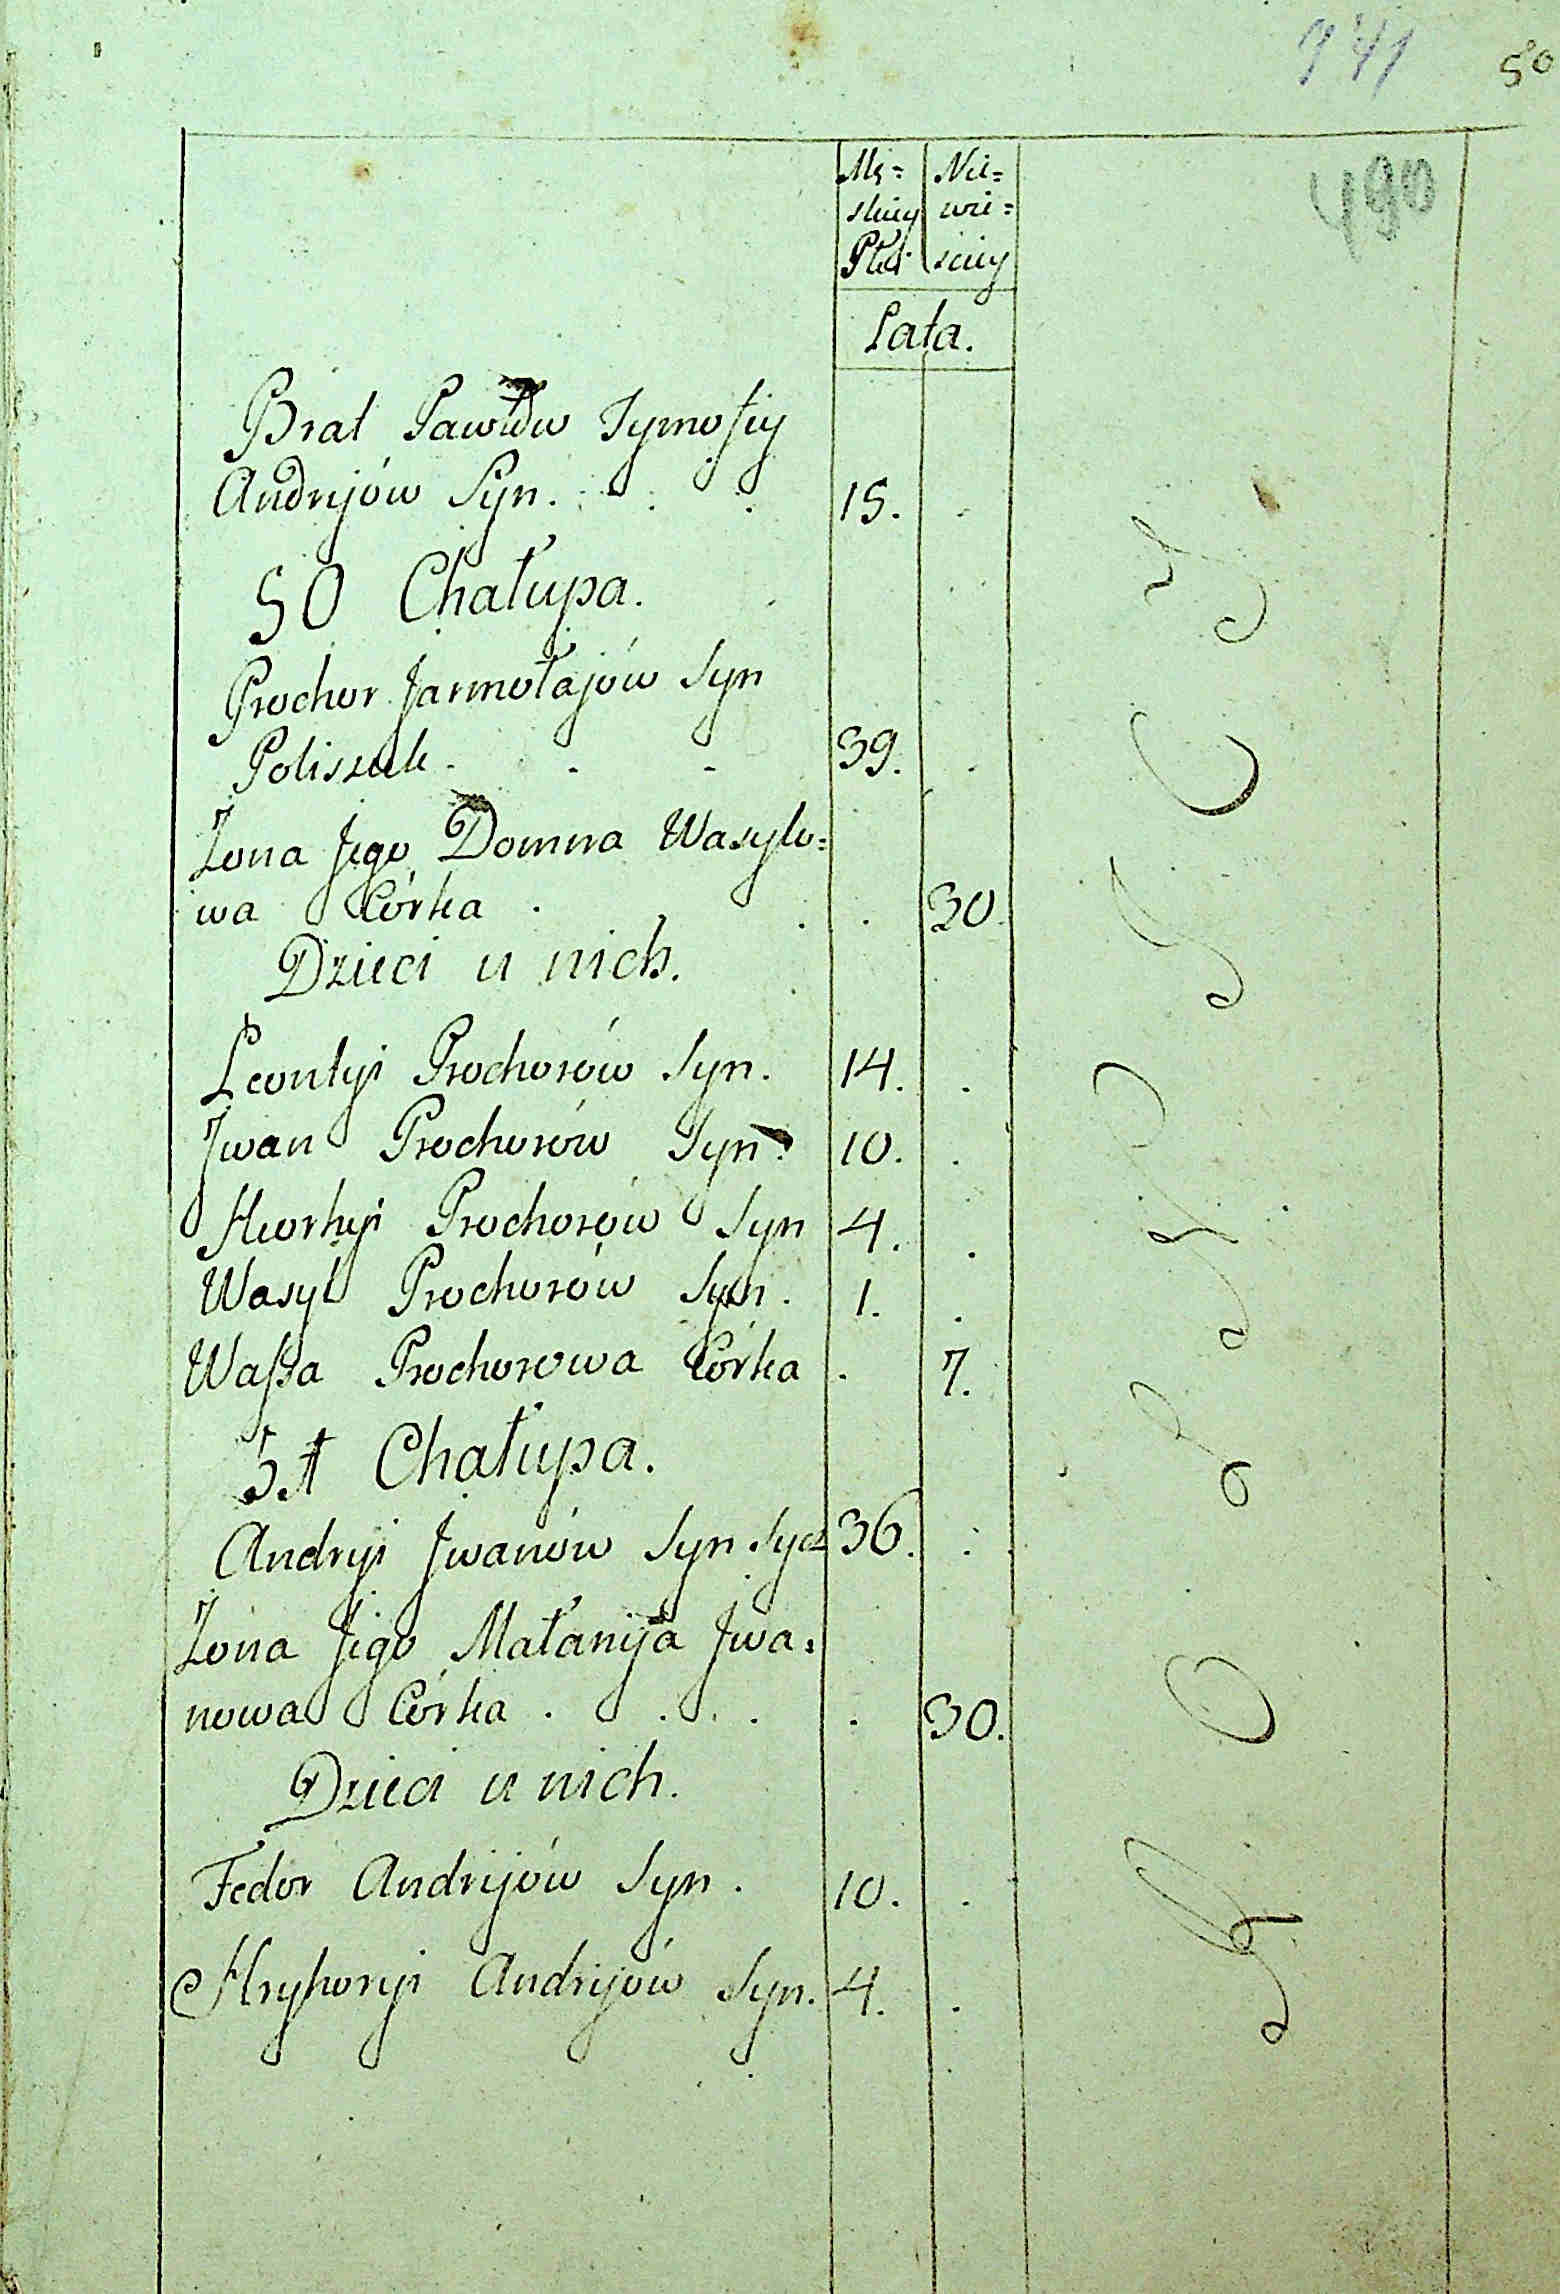 741 50
490
Mę= Nie=
skiey wie=
Płci sciey
Lata.
Brat Pawłów Tymofiy
Andrijów Syn. 15.
50 Chałupa.
Prochor Jarmołajów Syn
Poliszuk 39.
Żona Jego Domna Wasylo=
wa Córka 30.
Dzieci u nich.
Leontyi Prochorów Syn. 14.
Jwan Prochorów Syn. 10.
Heorhyi Prochorów Syn 4.
Wasyl Prochorów Syn. 1.
Wassa Prochorowa Córka 7.
51 Chałupa.
Andryi Jwanów Syn Sycz 36.
Żona Jego Małanija Jwa=
nowa Córka 30.
Dzieci u nich.
Fedor Andrijów Syn. 10.
Hryhoryi Andrijów Syn. 4.